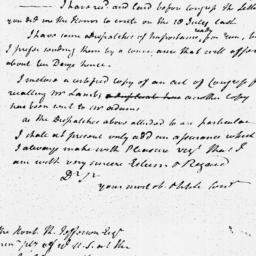 I have rec.d and laid before Congress the Letter
you did me the Honor to write on the 18 July last.
I have some Dispatches of Importance ready for you, but
I prefer sending them by a conveyance that will offer
about ten Days hence.
I enclose a certified Copy of an act of Congress for
recalling Mr Lamb, another Copy
has been sent to Mr Adams.
as the Dispatches above alluded to are particular
I shall at present only add an assurance which
I always make with Pleasure viz.t that I
am with very sincere Esteem & Regard
Dr Sir
your most ob.t & hble Serv.t
The Honb. Th. Jefferson Esq.r